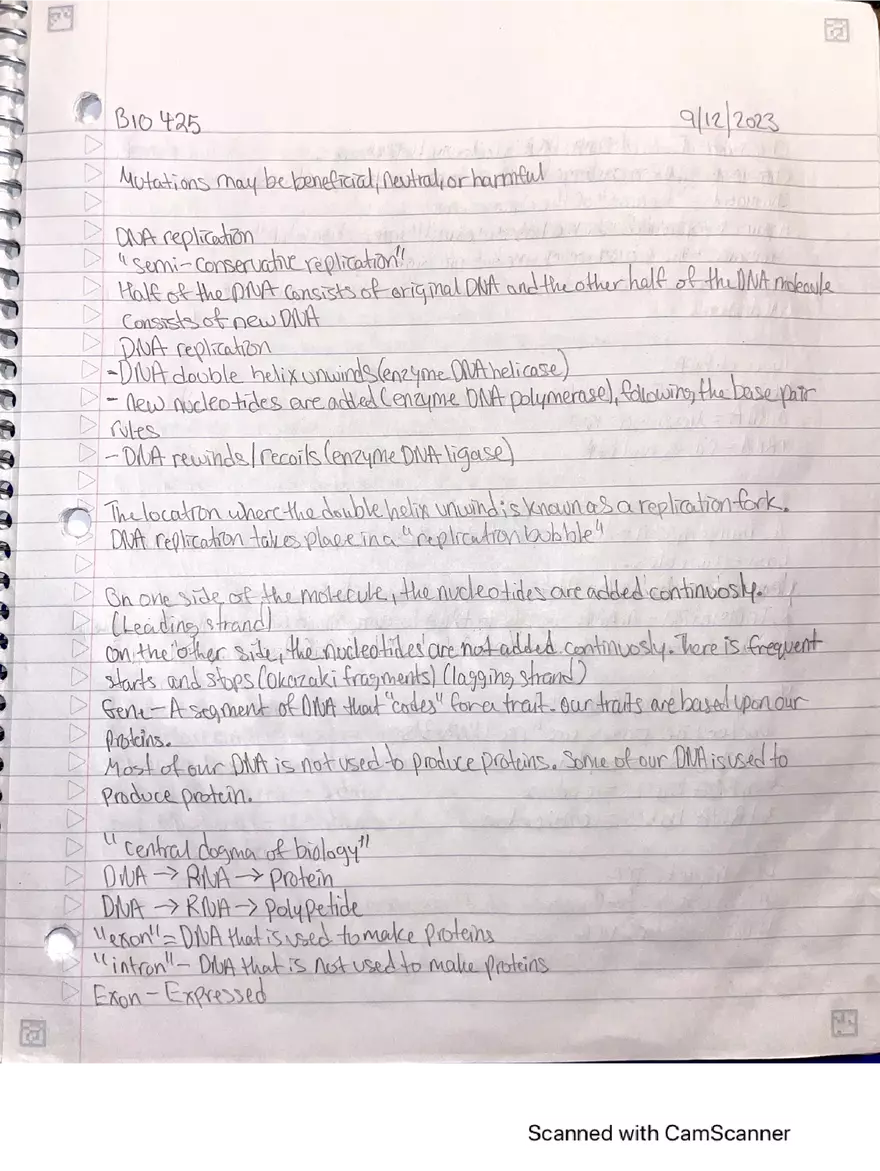 BIO 425 9/12/2023
Mutations may be beneficial, neutral, or harmful
DNA replication
"semi-conservative replication"
Half of the DNA consists of original DNA and the other half of the DNA molecule
consists of new DNA
DNA replication
-DNA double helix unwinds (enzyme DNA helicase)
- new nucleotides are added (enzyme DNA polymerase), following the base pair
rules
- DNA rewinds/recoils (enzyme DNA ligase)
The location where the double helix unwind is known as a replication fork.
DNA replication takes place in a "replication bubble"
On one side of the molecule, the nucleotides are added continuosly.
(Leading strand)
On the other side, the nucleotides are not added continuosly. There is frequent
starts and stops (okazaki fragments) (lagging strand)
Gene - A segment of DNA that "codes" for a trait. Our traits are based upon our
proteins.
Most of our DNA is not used to produce proteins. Some of our DNA is used to
produce protein.
"central dogma of biology"
DNA → RNA → Protein
DNA → RNA → Polypetide
"exon" = DNA that is used to make proteins
"intron" - DNA that is not used to make proteins
Exon - Expressed
Scanned with CamScanner